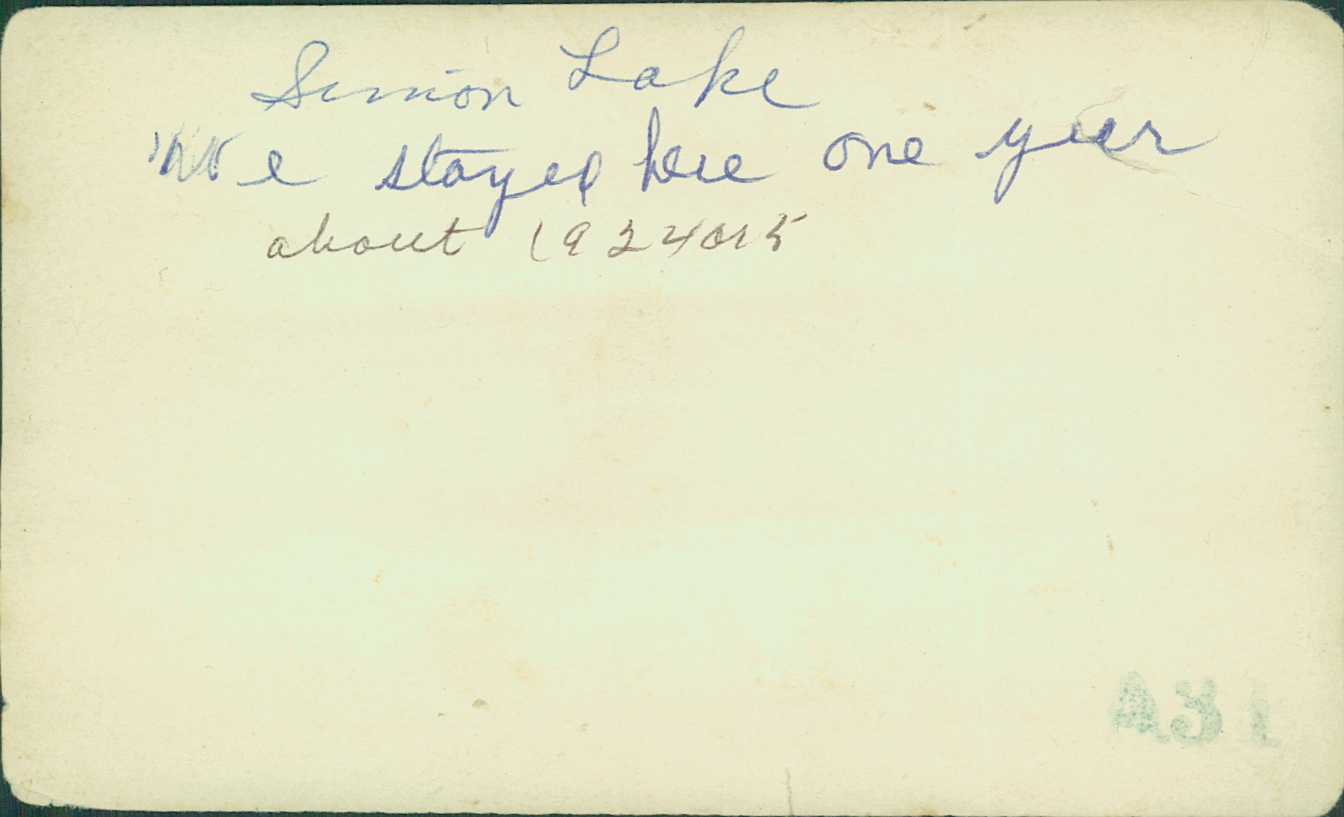 Simion Lake
We stayed here one year
about 1924 or 5